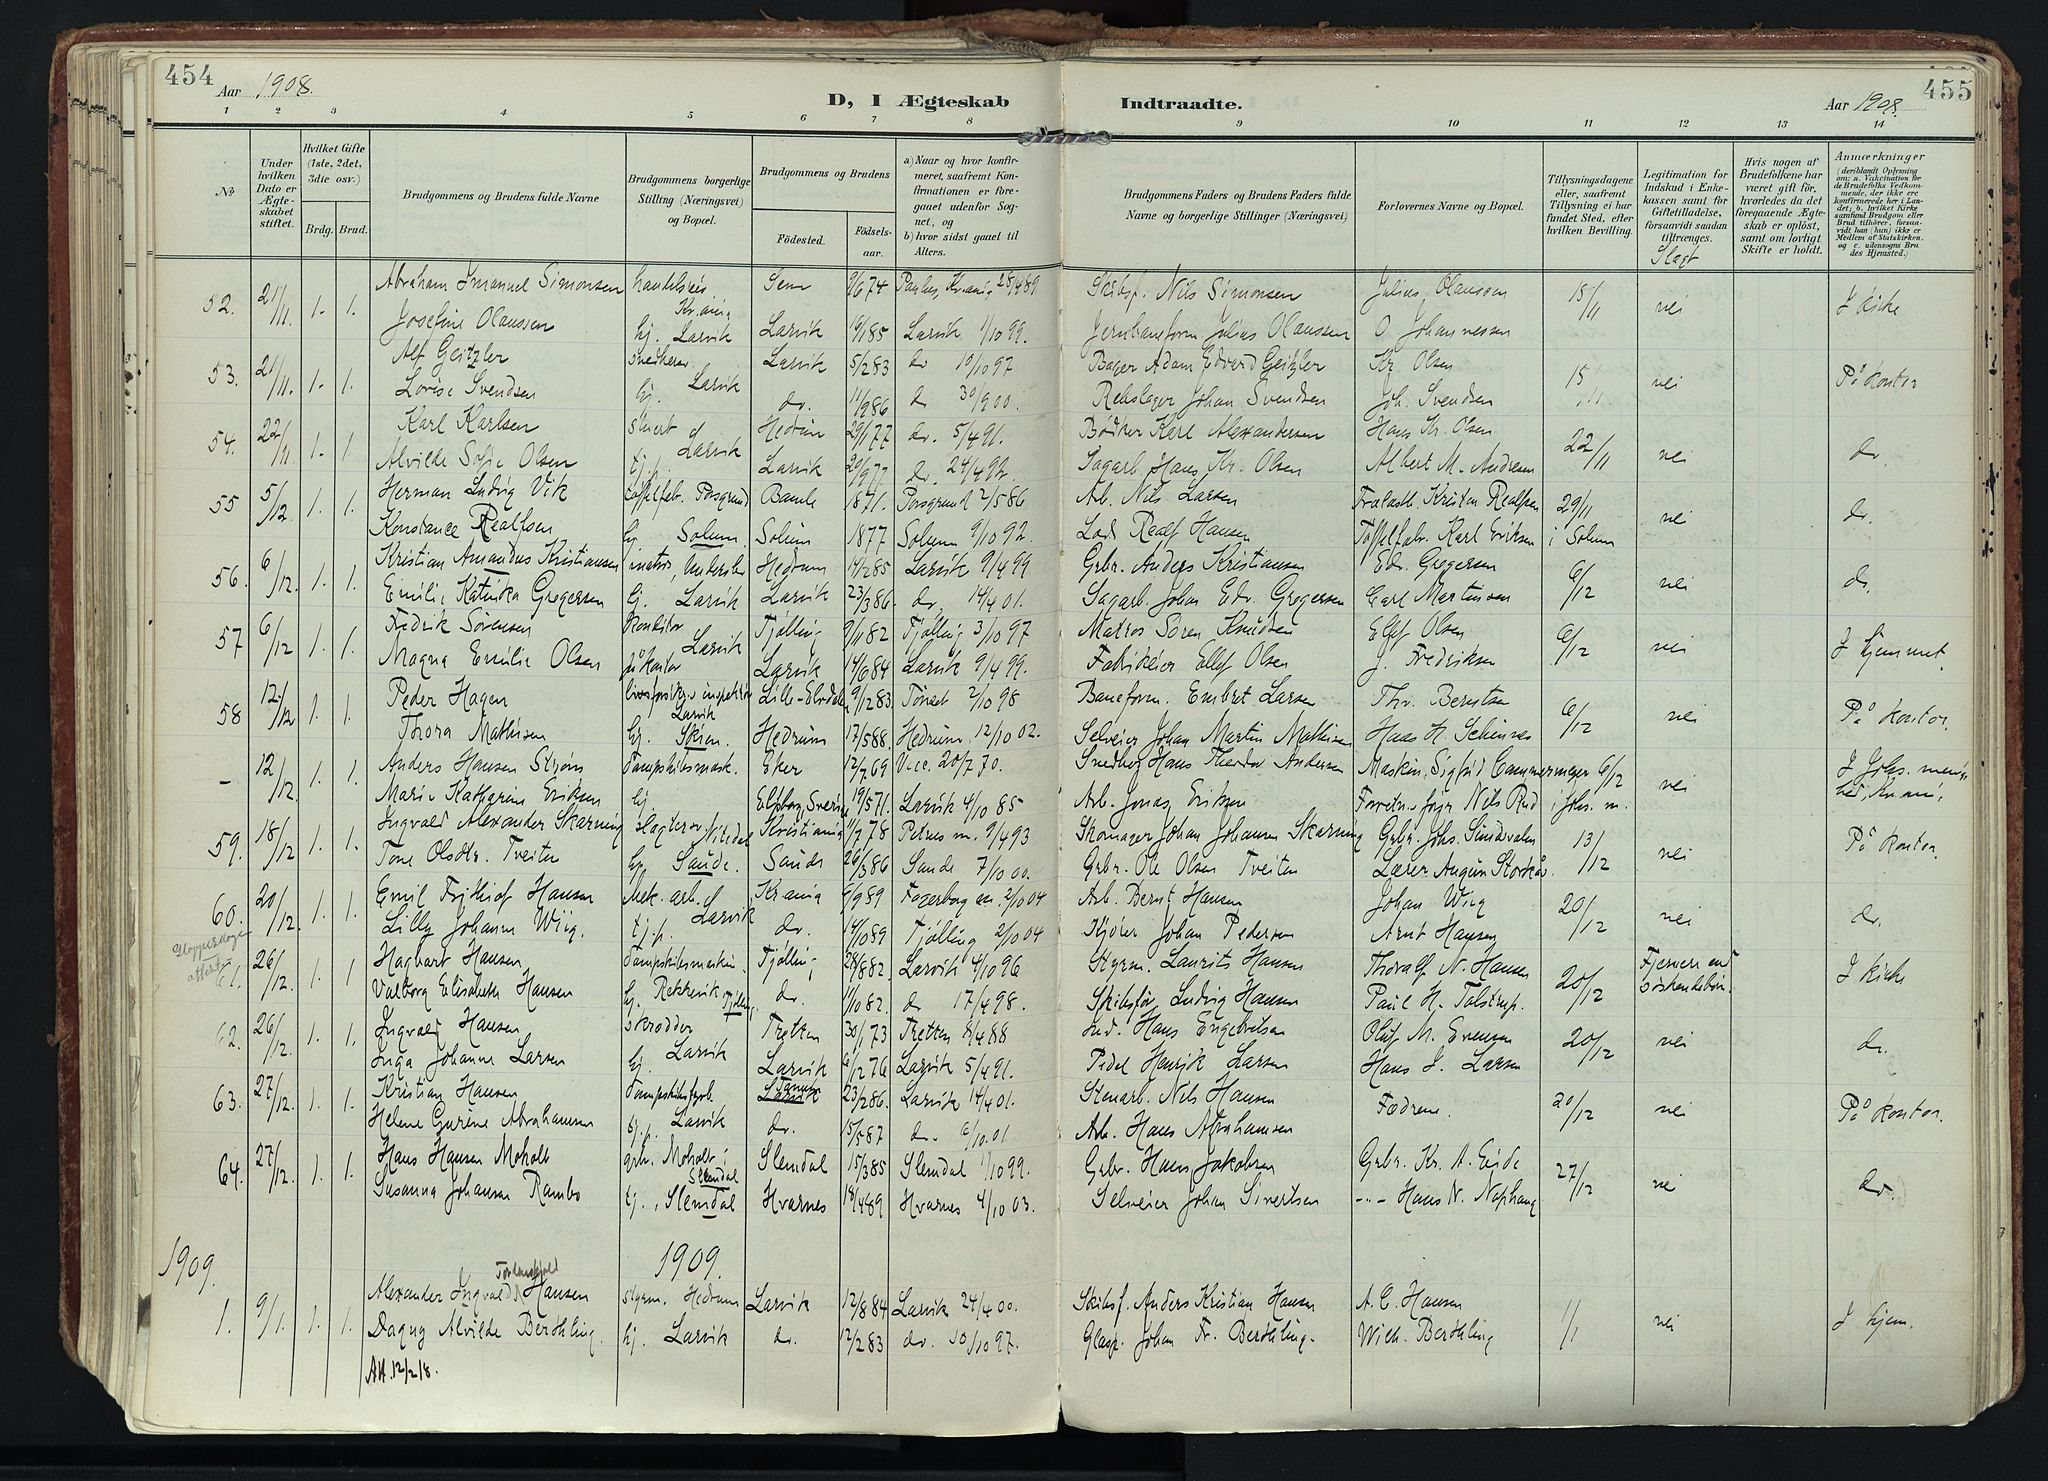 454
Aar 1908.
D, I Ægteskab
Indtraadte.
Aar 1908.
455
1 2 3 4 5 6 7 8 9 10 11 12 13 14
No
Under hvilken Dato er Ægteskabet stiftet.
Hvilket Gifte (1ste, 2det, 3die osv.)
Brdg. Brud.
Brudgommens og Brudens fulde Navne
Brudgommens borgerlige Stilling (Næringsvei) og Bopæl.
Brudgommens og Brudens
Fødested.
Fødselsaar.
a) Naar og hvor konfirmeret, saafremt Konfirmationen er foregaaet udenfor Sognet, og
b) hvor sidst gaaet til Alters.
Brudgommens Faders og Brudens Faders fulde Navne og borgerlige Stillinger (Næringsvei)
Forlovernes Navne og Bopæl.
Tillysningsdagene eller, saafremt Tillysning ei har fundet Sted, efter hvilken Bevilling.
Legitimation for Indskud i Enkekassen samt for Giftetilladelse, forsaavidt saadan tiltrænges.
Slægt
Hvis nogen af Brudefolkene har været gift før, hvorledes da det foregaaende Ægteskab er opløst, samt om lovligt Skifte er holdt.
Anmærkninger (deriblandt Oplysning om: a. Vakcination for de Brudefolks Vedkommende, der ikke ere konfirmerede her i Landet; b. hvilket Kirkesamfund Brudgom eller Brud tilhører, forsaavidt han (hun) ikke er Medlem af Statskirken, og c. udensogns Brudes Hjemsted.)
52. 21/11 1. 1. Abraham Imanuel Simonsen Sem 9/6 74 Paulus, Kr.ania 28/4 89 Skibsf. Nils Simonsen Julius Olaussen 15/11 nei I kirke
Josefine Olaussen hj. Larvik Larvik 19/1 85 Larvik 1/10 99. Jernbaneform Julius Olaussen O. Johannessen
53. 21/11. 1. 1. Alf Geitzler snedker Larvik Larvik 5/2 83 do 10/10 97 Bager Adam Edvard Geitzler Kr. Olsen 15/11 nei På kontor
Lovise Svendsen hj. do. 11/9 86 do 30/9 00. Rebslager Johan Svendsen Joh. Svendsen
54. 22/11 1. 1 Karl Karlsen stuert Larvik Hedrum 29/1 77 do. 5/4 91. Bødker Karl Alexandersen Hans Kr. Olsen 22/11 nei do.
Alvilde Sofie Olsen tj.p. Larvik 20/9 77 do. 24/4 92. Sagarb. Hans Kr. Olsen Albert M. Andresen
55 5/12 1. 1. Herman Ludvig Vik Porsgrund Bamle 1871. Porsgrund 2/5 86 Arb. Nils Larsen Kristen Realfsen 29/11 i Solum nei do.
Konstance Realfsen hj Solum. Solum 1877 Solum 9/10 92. Lods Realf Hansen Tøffelfabr. Karl Eriksen
56. 6/12. 1. 1. Kristian Amandus Kristiansen matros, Hedrum 14/2 85 Larvik 9/4 99 Grbr. Anders Kristiansen Edv. Gregersen 6/12 nei do.
Emilie Katinka Gregersen hj. Larvik Larvik 23/3 86. do. 14/4 01. Sagarb. Johan Edv. Gregersen Carl Martinsen
57 6/12 1. 1. Fredrik Sørensen konditor Larvik Tjølling 9/11 82 Tjølling 3/10 97 Matros Søren Knudsen Ellef Olsen 6/12 nei I hjemmet.
Magna Emilie Olsen på kontor Larvik 14/6 84 Larvik 9/4 99. Fabrikeier Ellef Olsen J. Fredriksen
58 12/12 1. 1. Peder Hagen livsforsikr. inspektør Larvik Lille-Elvedalen 9/12 83 Tønset 2/10 98 Baneform. Embret Larsen Thv. Berntsen 6/12 nei På kontor.
Thora Mathisen hj. Skien. Hedrum 17/5 88. Hedrum 12/10 02. Selveier Johan Martin Mathisen Hans H. Scheinnes
— 12/12. 1. 1. Anders Hansen Strøm Dampskibsmask. Eker 12/7 69 Vacc. 20/7 70. Smedbg Hans Theodor Andersen Maskin. Sigfrid Cammermeyer 6/12 i Johs. m. nei I Johs. menighed, Kr.ania.
Marie Katharina Eriksen hj Elfsborg, Sverige 19/5 71. Larvik 4/10 85 Arb. Jonas Eriksen Nils Rud
59. 18/12 1. 1. Ingvald Alexander Skarning slagter, Nitedal Kristiania 11/7 78 Petrus m. 9/4 93 Skomager Johan Johansen Skarning Grbr. Johs. Sundsvalen 13/12 nei På kontor.
Tone Olsdtr. Tveiten hj. Saude. Saude 26/3 86 Saude 7/10 00. Grbr. Ole Olsen Tveiten Lærer Augun Storkås.
60. 20/12. 1. 1. Emil Fritjof Hansen Mek. arb. Larvik Kr.ania 6/9 89 Fagerborg m 2/10 04 Arb. Bernt Hansen Johan Wiig 20/12 nei do.
Lilly Johanne Wiig. tj.p. do. 14/10 89 Tjølling 2/10 04 Kjører Johan Pedersen Arnt Hansen
61. 26/12. 1. 1. Hagbart Hansen Dampskibsmaskin. Tjølling 28/8 82. Larvik 4/10 96 Styrm. Laurits Hansen Thoralf N. Hansen 20/12 Fjernere end søskendebørn. I kirke
Valborg Elisabeth Hansen hj. Rekkevik Tjølling do. 11/10 82. do 17/4 98. Skibsfør Ludvig Hansen Paul H. Tolstrup.
62. 26/12. 1. 1. Ingvald Hansen skrædder Larvik Tretten 30/1 73 Tretten 8/4 88 Ind. Hans Engebretsen Oluf M. Evensen 20/12 nei do.
Inga Johanne Larsen hj. Larvik 6/12 76 Larvik 5/4 91. Pedel Henrik Larsen Hans J. Larsen
63. 27/12. 1. 1. Kristian Hansen Dampskibsfyrb. Larvik Tanum 23/2 86. Larvik 14/4 01. Stenarb. Nils Hansen Fædrene. 20/12 nei På kontor.
Helene Gurine Abrahamsen tj.p. do. 15/5 87 do. 6/10 01 Arb. Hans Abrahamsen
64. 27/12. 1. 1. Hans Hansen Moholt grbr. Moholt i Slemdal Slemdal 15/3 85 Slemdal 1/10 99. Grbr. Hans Jakobsen Grbr. Kr. A. Eide 27/12 nei do.
Susanna Johansen Rambo tj., Slemdal Hvarnes 18/4 89 Hvarnes 4/10 03. Selveier Johan Sivertsen -"- Hans N. Naphaug
1909. 1909.
Tordenskjold
1. 9/1. 1. 1. Alexander Ingvald Hansen styrm. Hedrum Larvik 12/8 84 Larvik 24/4 00. Skibsf. Anders Kristian Hansen A. C. Hansen 1/1 nei I hjem.
Dagny Alvilde Berthling. hj. Larvik do. 12/2 83 do. 10/10 97. Glasp. Johan Fr. Berthling. Wilh. Berthling
Att. 12/2 18.